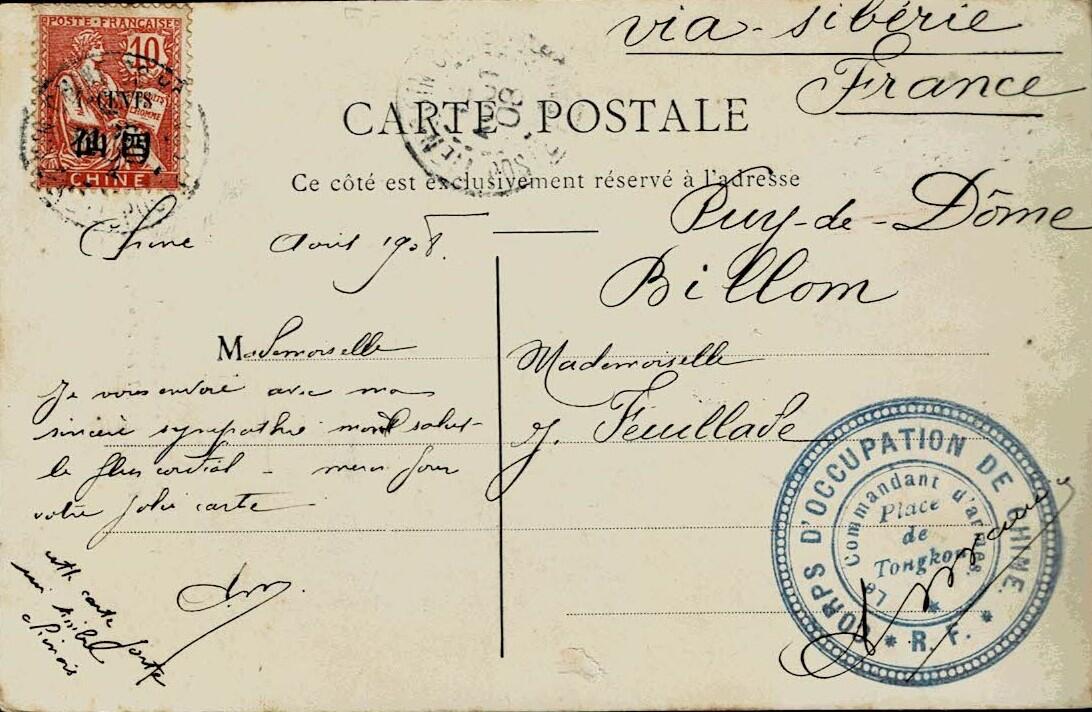 POSTE FRANÇAISE
10
CENTS
CHINE
via - sibérie
France
CARTE POSTALE
Ce côté est exclusivement réservé à l'adresse
Chine Avril 1908.
Puy-de-Dôme
Billom
Mademoiselle
Je vous envoie avec ma
sincère sympathie mon salut
le plus cordial - merci pour
votre jolie carte
cette carte porte
chinois
Mademoiselle
J. Feuillade
CORPS D'OCCUPATION DE CHINE.
Le Commandant d'armes.
Place
de
Tongkou
* R. F. *